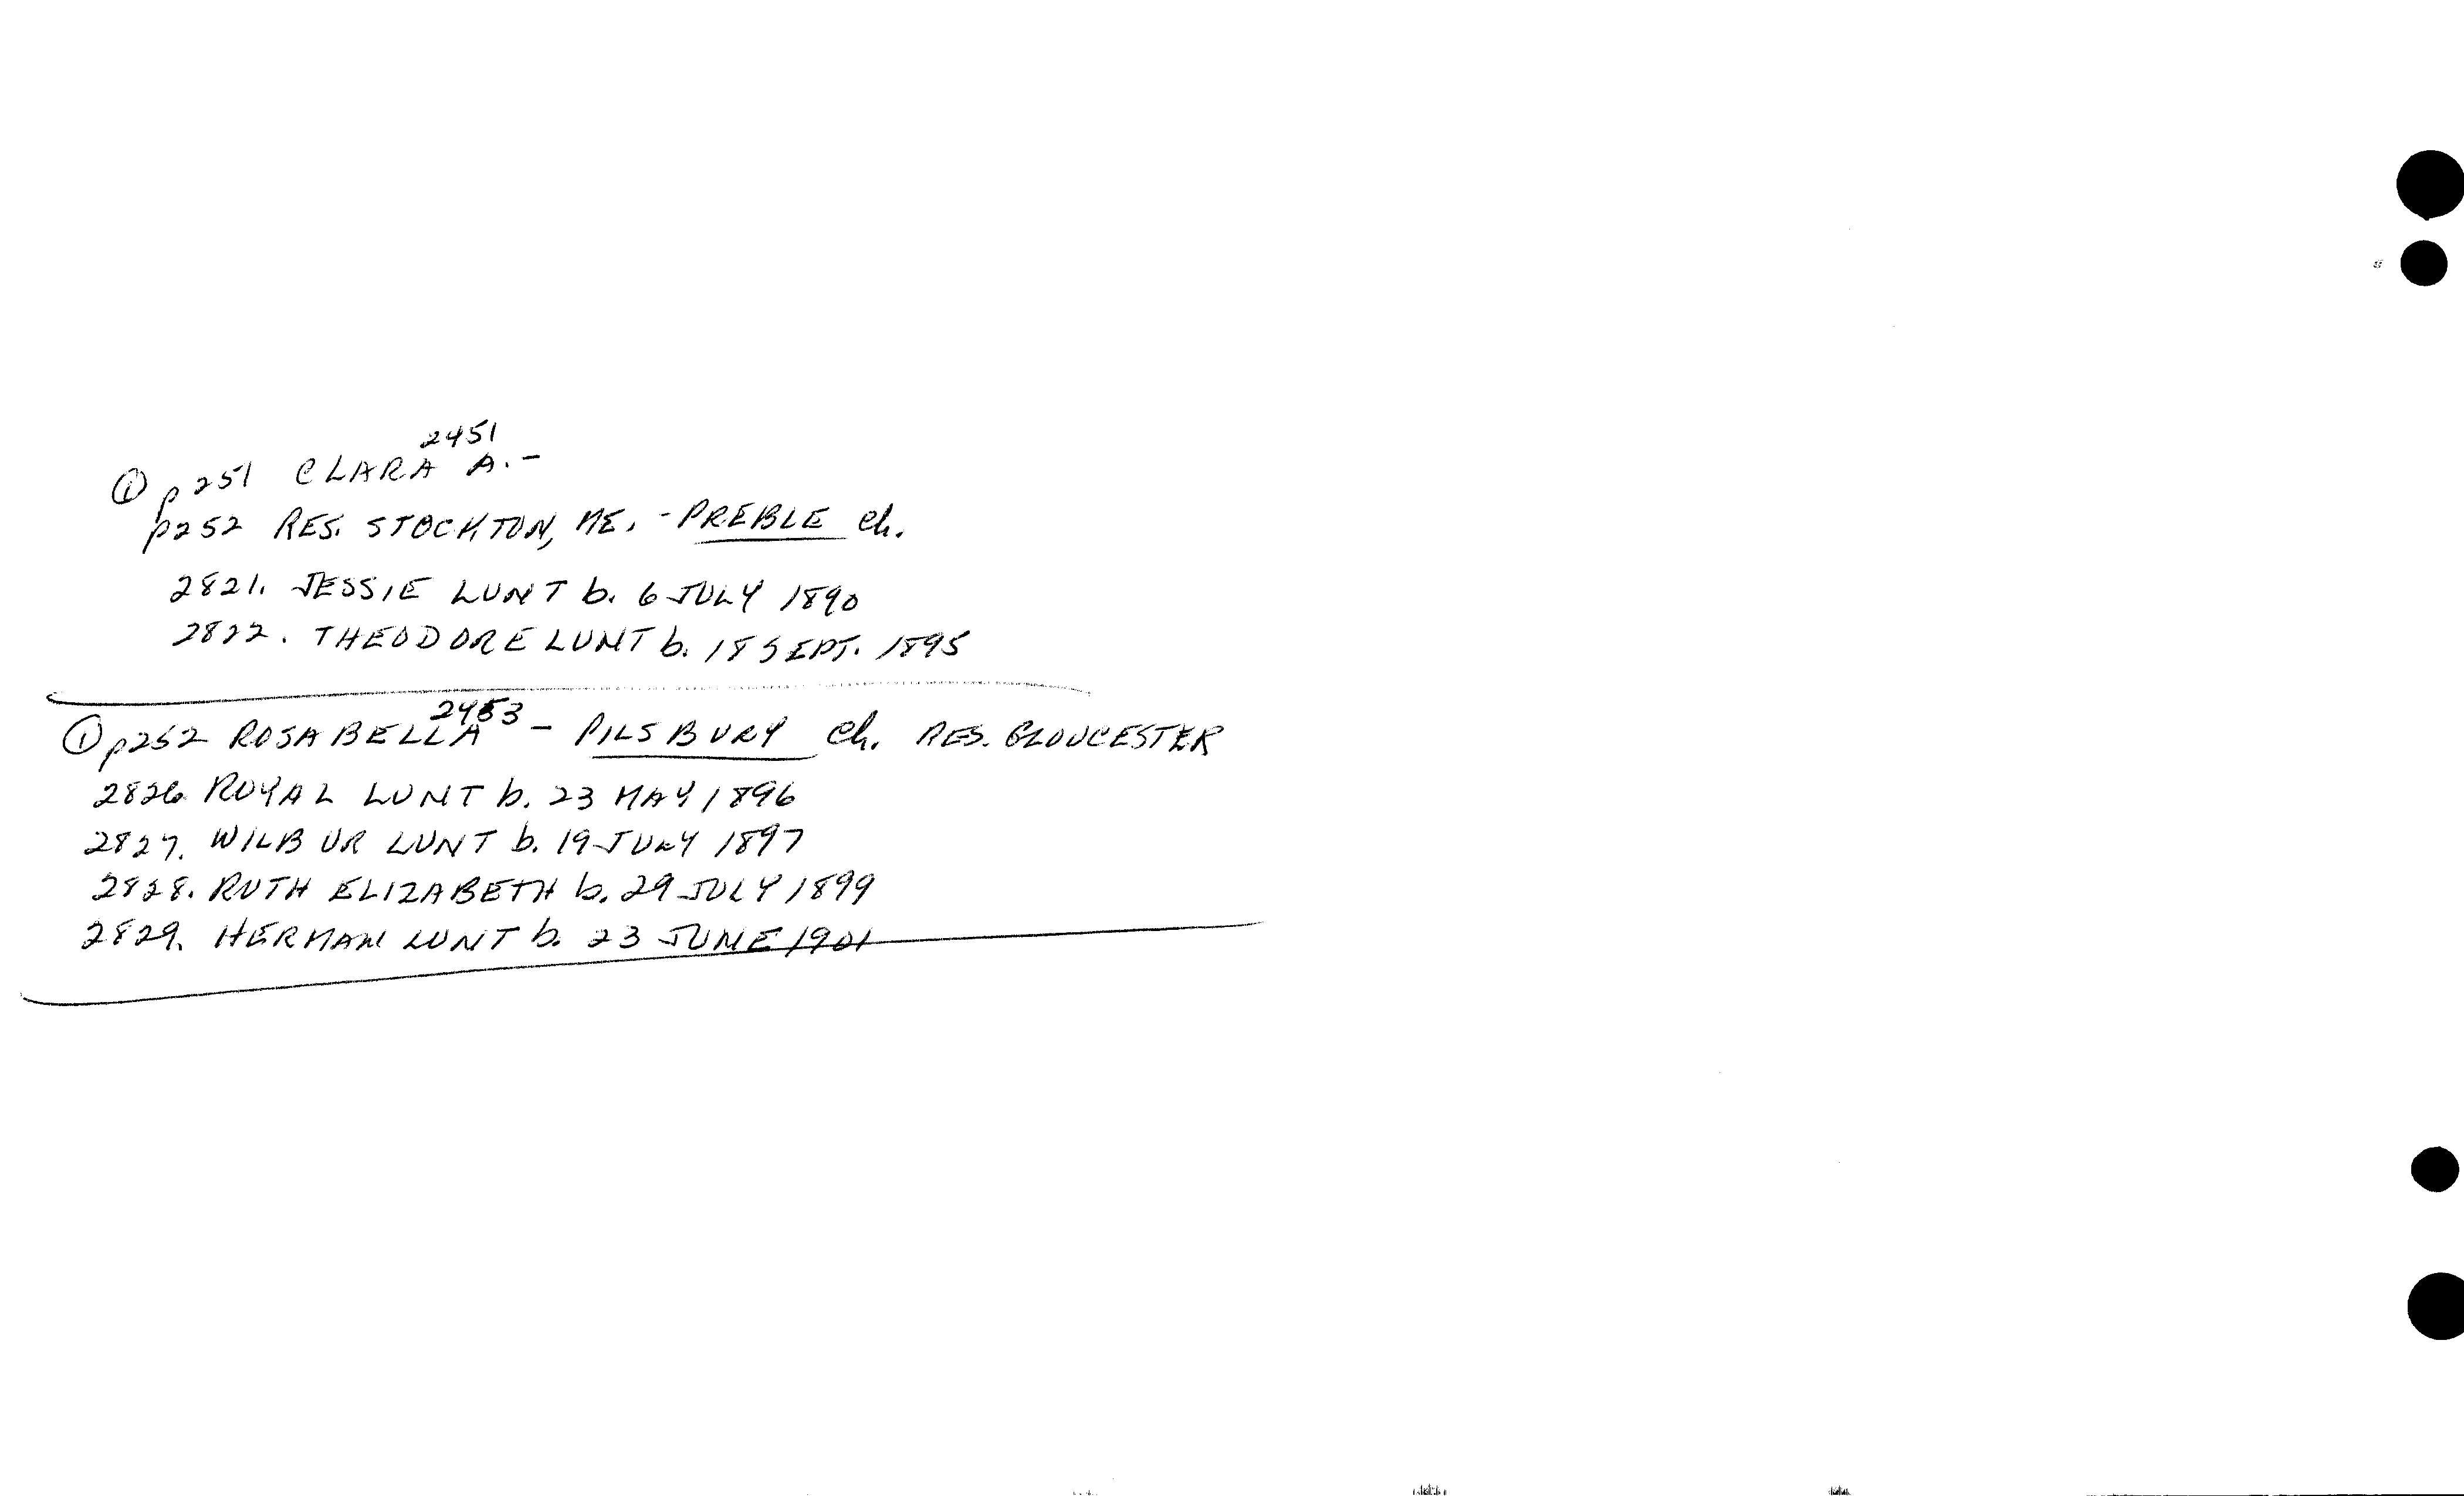 2451
① p251 CLARA A. -
p252 RES. STOCKTON, ME. - PREBLE Ch.
2821. JESSIE LUNT b. 6 JULY 1890
2822. THEODORE LUNT b. 18 SEPT. 1895
2453
① p252 ROSABELLA - PILSBURY Ch. RES. GLOUCESTER
2826. ROYAL LUNT b. 23 MAY 1896
2827. WILBUR LUNT b. 19 JULY 1897
2828. RUTH ELIZABETH b. 29 JULY 1899
2829. HERMAN LUNT b. 23 JUNE 1901